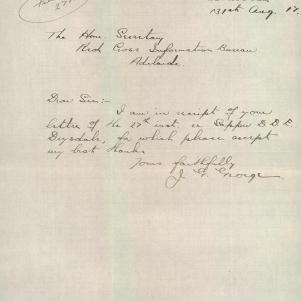 Aug. 17.
The Hon. Secretary
Red Cross Information Bureau
Adelaide.
Dear Sir:-
I am in receipt of your
letter of the 27th inst. re Sapper D. D. E.
Drysdale, for which please accept
my best thanks
Yours faithfully
J. G. George